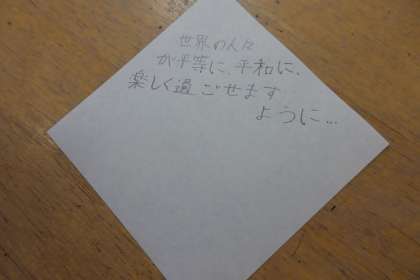 世界の人々
が平等に、平和に、
楽しく過ごせます
ように…